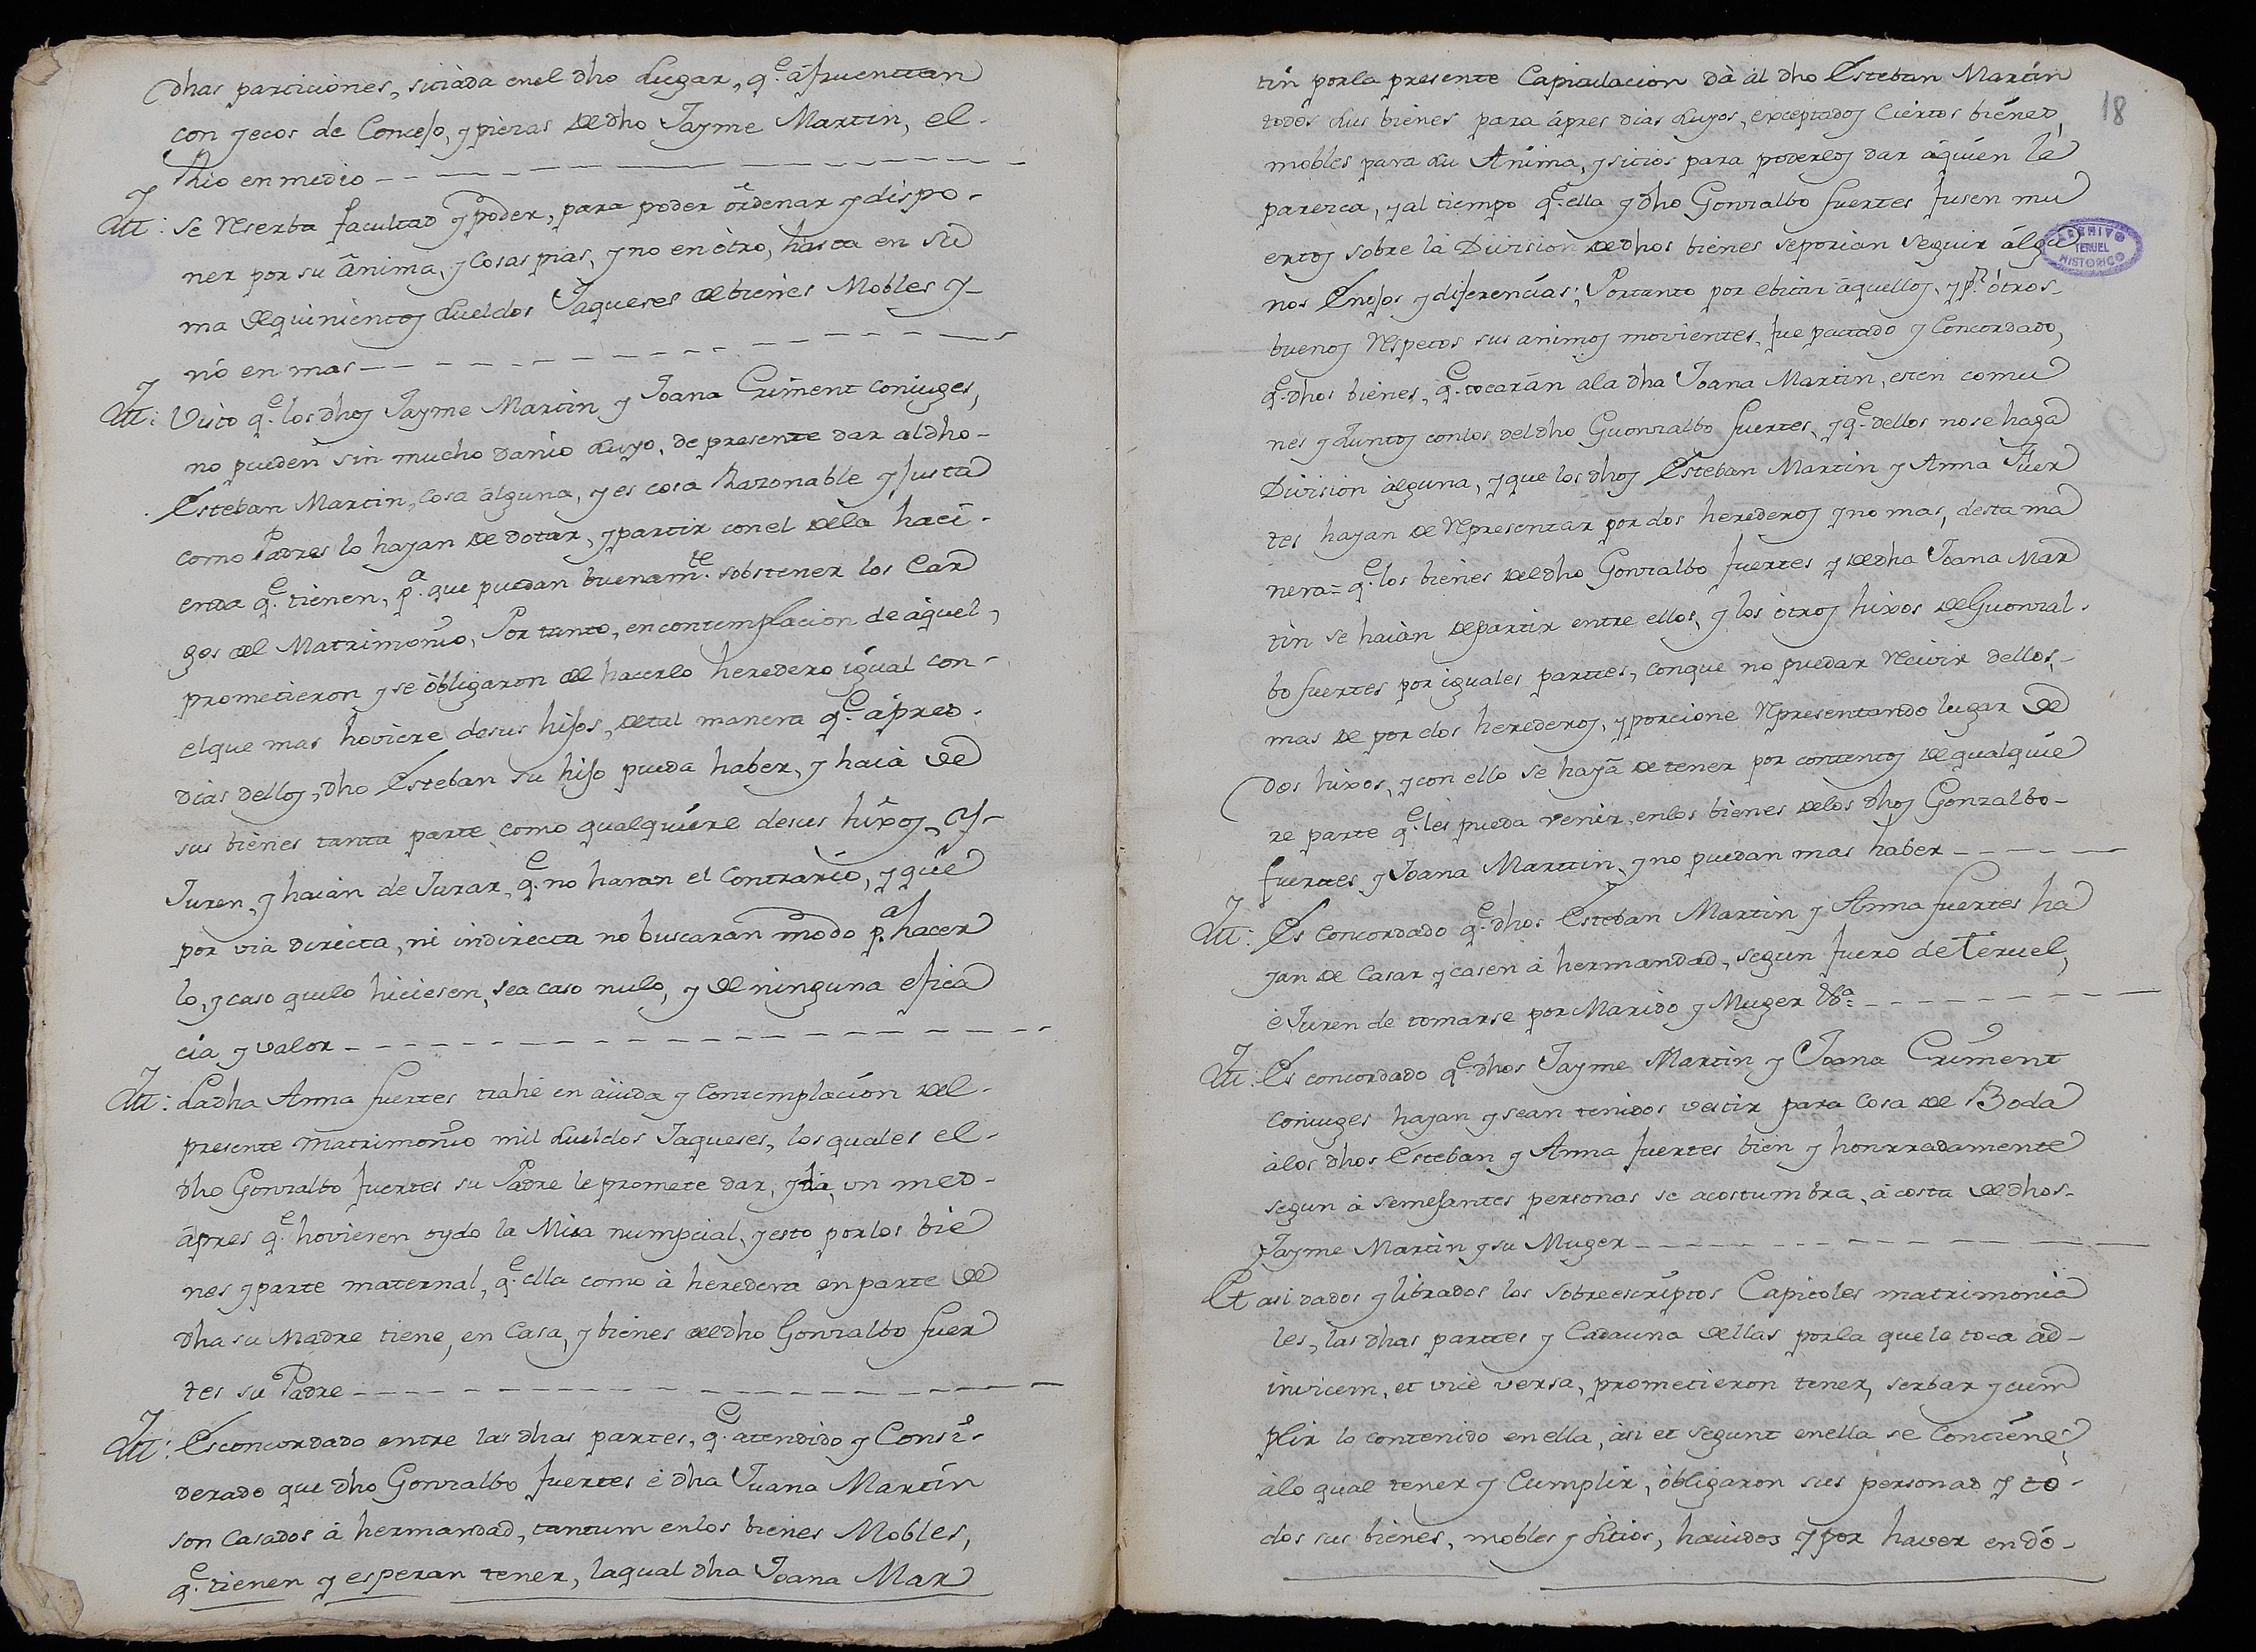 dhas particiones, sitiada en el dho Lugar, q.e áfruenttan
con yecos de Concejo, y piezas de dho Jayme Martin, el-
Rio en medio
Itt: se reserba facultad y poder, para poder órdenar y dispo-
ner por su ánima, y Cosas pias, y no en ótro, hasta en su
ma de quinientos sueldos Jaqueses de bienes Mobles y-
nó en mas
Itt: Visto q.e los dhos Jayme Martin y Joana Criment coniuges,
no pueden sin mucho danio suyo, de presente dar al dho-
Esteban Martin, cosa álguna, y es cosa Razonable y Justa
como Padres lo hayan de dotar, y partir con el de la haci-
enda q.e tienen, p.a que puedan buenam.te sobstener los Car
gos del Matrimonio, Por tanto, en contemplacion de áquel,
prometieron y se óbligaron de hacerlo heredero igual con-
el que mas hoviere de sus hijos, de tal manera q.e ápres-
dias dellos, dho Esteban su hijo pueda haber, y haiá de
sus bienes tanta parte como qualquiere de sus hixos, y-
Juren, y haián de Jurar, q.e no haran el Contrario, y que
por via directa, ni indirecta no buscaran modo p.a hacer
lo, y caso quelo hiciesen, sea caso nulo, y de ninguna efica
cia y valor
Itt: La dha Anna fuertes trahe en aiuda y Contemplación del-
presente matrimonio mil sueldos Jaqueses, los quales el-
dho Gonzalbo fuertes su Padre le promete dar, y dá, un mes-
ápres q.e hovieren oydo la Misa numpcial, y esto por los bie
nes y parte maternal, q.e ella como á heredera en parte de
dha su Madre tiene, en Casa, y bienes de dho Gonzalbo fuer
tes su Padre
Itt: Es concordado entre las dhas partes, q.e atendido y Consi-
derado que dho Gonzalbo fuertes é dha Juana Martin
son Casados á hermandad, tantum en los bienes Mobles,
q.e tienen y esperan tener, la qual dha Joana Mar
18
tin por la presente Capitulacion dá ál dho Esteban Martin
todos sus bienes para ápres dias suyos, exceptados Ciertos bienes
mobles para su Anima, y sitios para poderlos dar áquien le
parezca, y al tiempo q.e ella y dho Gonzalbo fuertes fusen mu
ertos sobre la Division de dhos bienes se porian seguir álgu
nos Enojos y diferencias; Portanto por ebitar áquellos, y p.r ótros-
buenos respetos sus animos movientes, fue pactado y Concordado,
q.e dhos bienes, q.e tocarán a la dha Joana Martin, esten comu
nes y Juntos con los del dho Guonzalbo fuertes, y q.e dellos no se haga
Division álguna, y que los dhos Esteban Martin y Anna Fuer
tes hayan de representar por dos herederos y no mas, desta ma
nera= q.e los bienes del dho Gonzalbo fuertes y de dha Joana Mar
tin se haián de partir entre ellos, y los ótros hixos de Guonzal-
bo fuertes por iguales parttes, con que no puedar recivir dellos,-
mas de por dos herederos, y porcione representando lugar de
dos hixos, y con ello se hayá de tener por contentos de qualquie
re parte q.e les pueda venir, en los bienes de los dhos Gonzalbo-
fuerttes y Joana Marttin, y no puedan mas haber
Itt: Es Concordado q.e dhos Esteban Martin y Anna fuertes ha
yan de Casar y casen á hermandad, segun fuero de Teruel,
é Juren de tomarse por Marido y Muger &a
Itt: Es concordado q.e dhos Jayme Martin y Joana Criment
coniuges hayan y sean tenidos vestir para Cosa de Boda
álos dhos Esteban y Anna fuertes bien y honrradamente
segun á semejantes personas se acostumbra, á costa de dhos-
Jayme Martin y su Muger
Et asi dados y librados los Sobreescriptos Capitoles matrimonia
les, las dhas parttes y Cada una dellas por la que le toca ad-
invicem, et vice versa, prometieron tener, serbar y cum
plir lo contenido en ella, ási et segunt en ella se Contiene
álo qual tener y Cumplir, óbligaron sus personas y to-
dos sus bienes, mobles y Sitios, havidos y por haver en dó-
ARCHIVO
HISTORICO
TERUEL